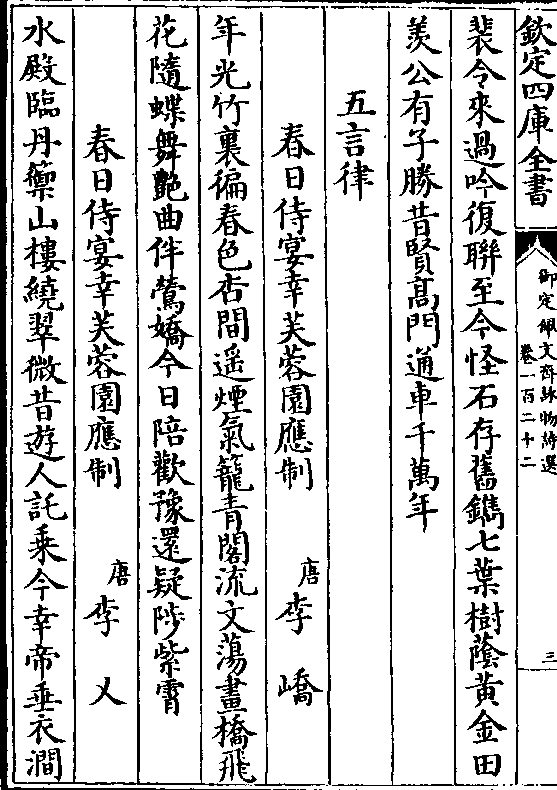 欽定四庫全書
御定佩文齋詠物詩選
卷一百二十二
三
裴令來過吟復聯至今怪石存舊鐫七葉樹蔭黃金田
羨公有子勝昔賢高門通車千萬年
五言律
春日侍宴幸芙蓉園應制 唐李嶠
年光竹裏徧春色杏間遥煙氣籠青閣流文蕩畫橋飛
花隨蝶舞艶曲伴鶯嬌今日陪歡豫還疑陟紫霄
春日侍宴幸芙蓉園應制 唐李乂
水殿臨丹籞山樓繞翠微昔遊人託乗今幸帝垂衣澗